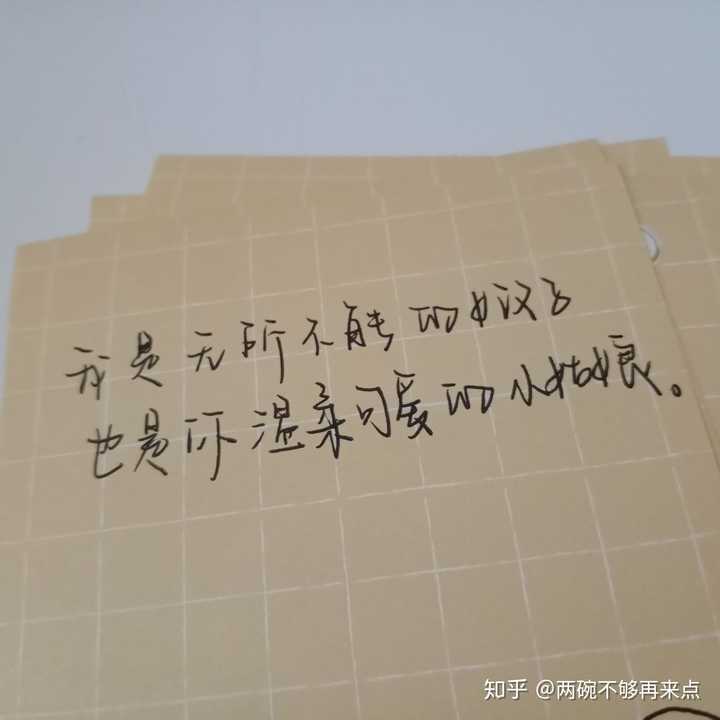 我是无所不能的女汉子
也是你温柔可爱的小姑娘。
知乎 @两碗不够再来点